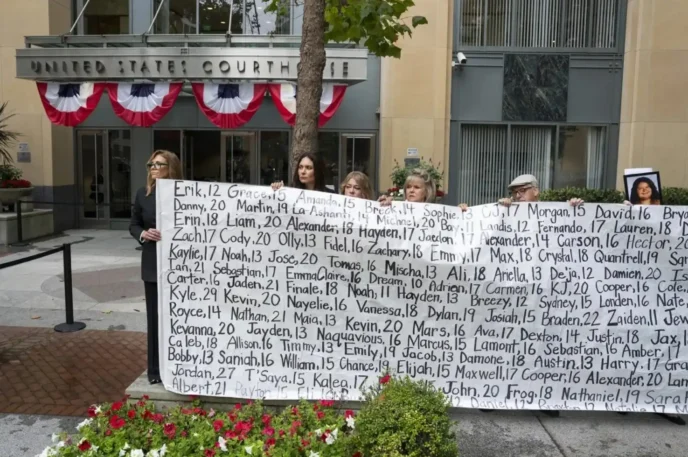 UNITED STATES COURTHOUSE
Erik,12 Grace,15 Amanda,15 Brook,14 Sophie,13 CJ,17 Morgan,15 David,16 Brya
Danny, 20 Martin,19 La Ashanti,14 Michael,20 Bay,11 Landis,12 Fernando,17 Lauren,18
Erin,18 Liam,20 Alexander,18 Hayden,17 Jaedon,17 Alexander,14 Carson,16 Hector,20
Zach,17 Cody,20 Olly,13 Fidel,16 Zachary,18 Emmy,17 Max,18 Crystal,18 Quantrell,19
Kaylie,17 Noah,13 Jose,20 Tomas,16 Mischa,13 Ali,18 Ariella,13 Deija,12 Damien,20
Ian,21 Sebastian,17 EmmaClaire,16 Dream,10 Adrien,17 Carmen,16 KJ,20 Cooper,16 Cole,
Carter,16 Jaden,21 Finale,18 Noah,11 Hayden,13 Breezy,12 Sydney,15 Londen,16 Nate,
Kyle,29 Kevin,20 Nayelie,16 Vanessa,18 Dylan,19 Josiah,15 Braden,22 Zaiden,11
Royce,14 Nathan,21 Maia,13 Kevin,20 Mars,16 Ava,17 Dexton,14 Justin,18 Jax,
Kevanna,20 Jayden,13 Naquavious,16 Marcus,15 Lamont,16 Sebastian,16 Amber,17
Caleb,18 Allison,16 Timmy,13 Emily,19 Jacob,13 Damone,18 Austin,13 Harry,17
Bobby,13 Saniah,16 William,15 Chance,19 Elijah,15 Maxwell,17 Cooper,16 Alexander,20
Jordan,27 T'Saya,15 Kalea,17 John,20 Frog,18 Nathaniel,19 Sara
Albert,21